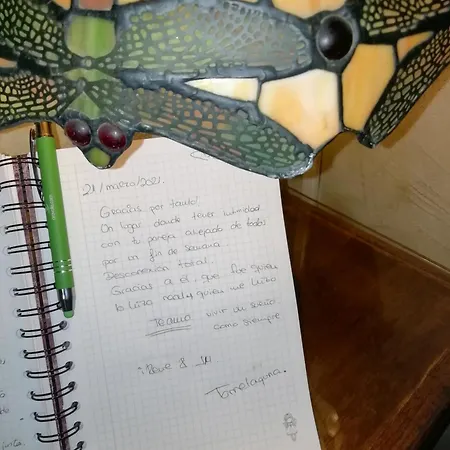 21/marzo/2021.
Gracias por tanto!
Un lugar donde tener intimidad
con tu pareja alejado de todo
por un fin de semana.
Desconexión total.
Gracias a él, que fue quien
lo hizo real y quien me hizo
vivir un sueño
como siempre
Torrelaguna.